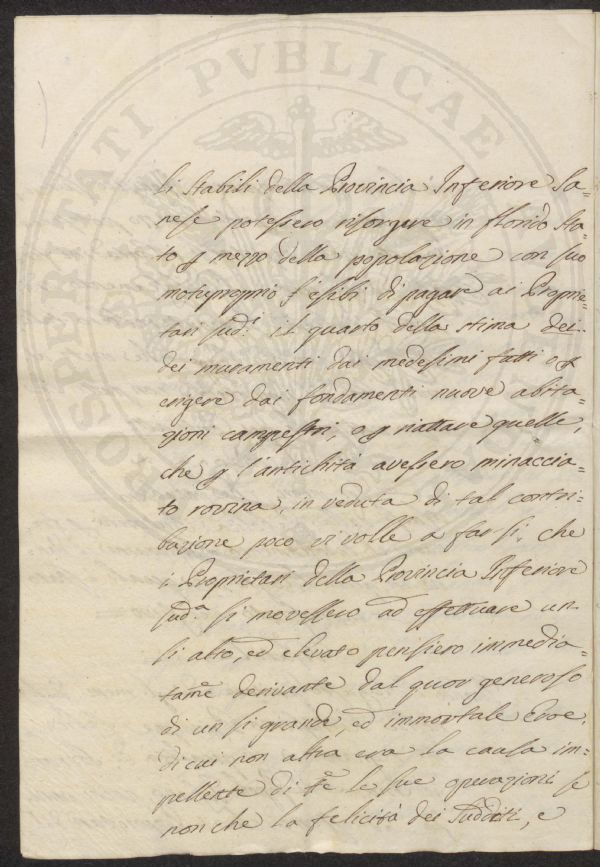 PROSPERITATI PVBLICAE
li stabili della Provincia Inferiore Sa-
nese potessero risorgere in florido sta-
to p mezzo della popolazione con suo
motuproprio s'esibì di pagare ai Proprie-
tari sud.i il quarto della stima dei
dei muramenti dai medesimi fatti o p
erigere dai fondamenti nuove abita-
zioni campestri, o p riattare quelle,
che p l'antichità avessero minaccia-
to rovina, in veduta di tal contri-
bazione poco vi volle a far sì, che
i Proprietari della Provincia Inferiore
sud.a si movessero ad effettuare un
sì alto, ed elevato pensiero immedia-
tam.e derivante dal quor generoso
di un sì grande, ed immortale Eroe,
di cui non altra era la causa im-
pellente di tt.e le sue operazioni se
non che la felicità dei Sudditi, e